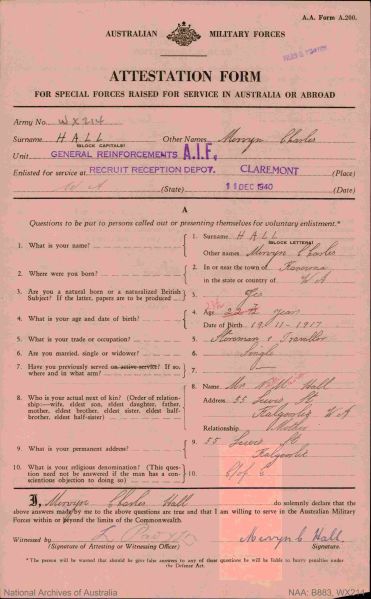 A.A. Form A.200.
AUSTRALIAN MILITARY FORCES
ATTESTATION FORM
FOR SPECIAL FORCES RAISED FOR SERVICE IN AUSTRALIA OR ABROAD
Army No. WX214
Surname HALL Other Names Mervyn Charles
(BLOCK CAPITALS)
Unit GENERAL REINFORCEMENTS A.I.F.
Enlisted for service at RECRUIT RECEPTION DEPOT. CLAREMONT (Place)
W A (State) 11 DEC 1940 (Date)
A
Questions to be put to persons called out or presenting themselves for voluntary enlistment.*
1. What is your name? 1. Surname HALL
(BLOCK LETTERS)
Other names Mervyn Charles
2. Where were you born? 2. In or near the town of Kanowna
in the state or country of W A
3. Are you a natural born or a naturalized British Subject? If the latter, papers are to be produced 3. Yes
4. What is your age and date of birth? 4. Age years
Date of Birth 19.11.1917
5. What is your trade or occupation? 5. Storeman & Traveller
6. Are you married, single or widower? 6. Single
7. Have you previously served on active service? If so, where and in what arm? 7. —
8. Who is your actual next of kin? (Order of relationship:—wife, eldest son, eldest daughter, father, mother, eldest brother, eldest sister, eldest half-brother, eldest half-sister) 8. Name Mrs Hall
Address 55 Lewis St
Kalgoorlie W A
Relationship Mother
9. What is your permanent address? 9. 55 Lewis St
Kalgoorlie
10. What is your religious denomination? (This question need not be answered if the man has a conscientious objection to doing so) 10. C of E
I, Mervyn Charles Hall do solemnly declare that the
above answers made by me to the above questions are true and that I am willing to serve in the Australian Military
Forces within or beyond the limits of the Commonwealth.
Witnessed by Mervyn C Hall
(Signature of Attesting or Witnessing Officer) Signature.
*The person will be warned that should he give false answers to any of these questions he will be liable to heavy penalties under
the Defence Act.
National Archives of Australia NAA: B883, WX214